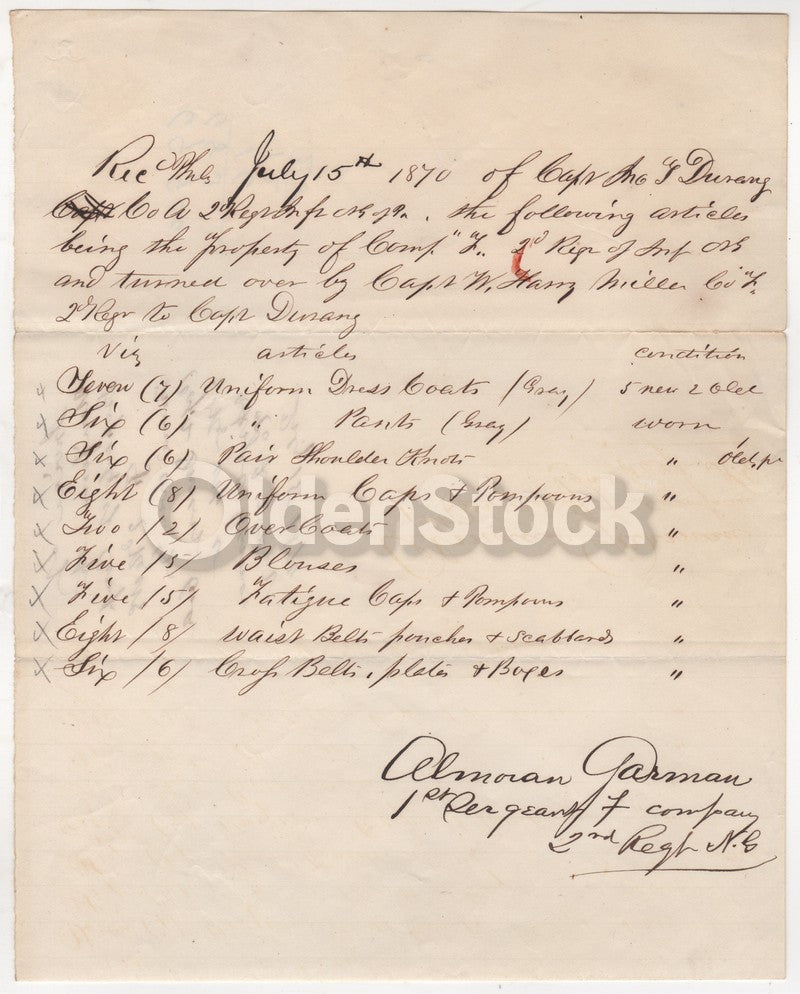 Rec'd Phila July 15th 1870 of Capt Jno T Durang
Capt Co A 2d Regt Inft NG of Pa. the following articles
being the property of Comp. "F" 2d Regt of Inf NG
and turned over by Capt W. Harry Miller Co "F"
2d Regt to Capt Durang
Viz articles condition
Seven (7) Uniform Dress Coats (Gray) 5 new 2 old
Six (6) " Pants (Gray) worn
Six (6) Pair Shoulder Knots " old, pr
Eight (8) Uniform Caps & Pompoons "
Two (2) Over Coats "
Five (5) Blouses "
Five (5) Fatigue Caps & Pompons "
Eight (8) Waist Belts pouches & Scabbards "
Six (6) Cross Belts, plates & Boxes "
OldenStock
Almoran Garman
1st Sergeant F company
2nd Regt N.G